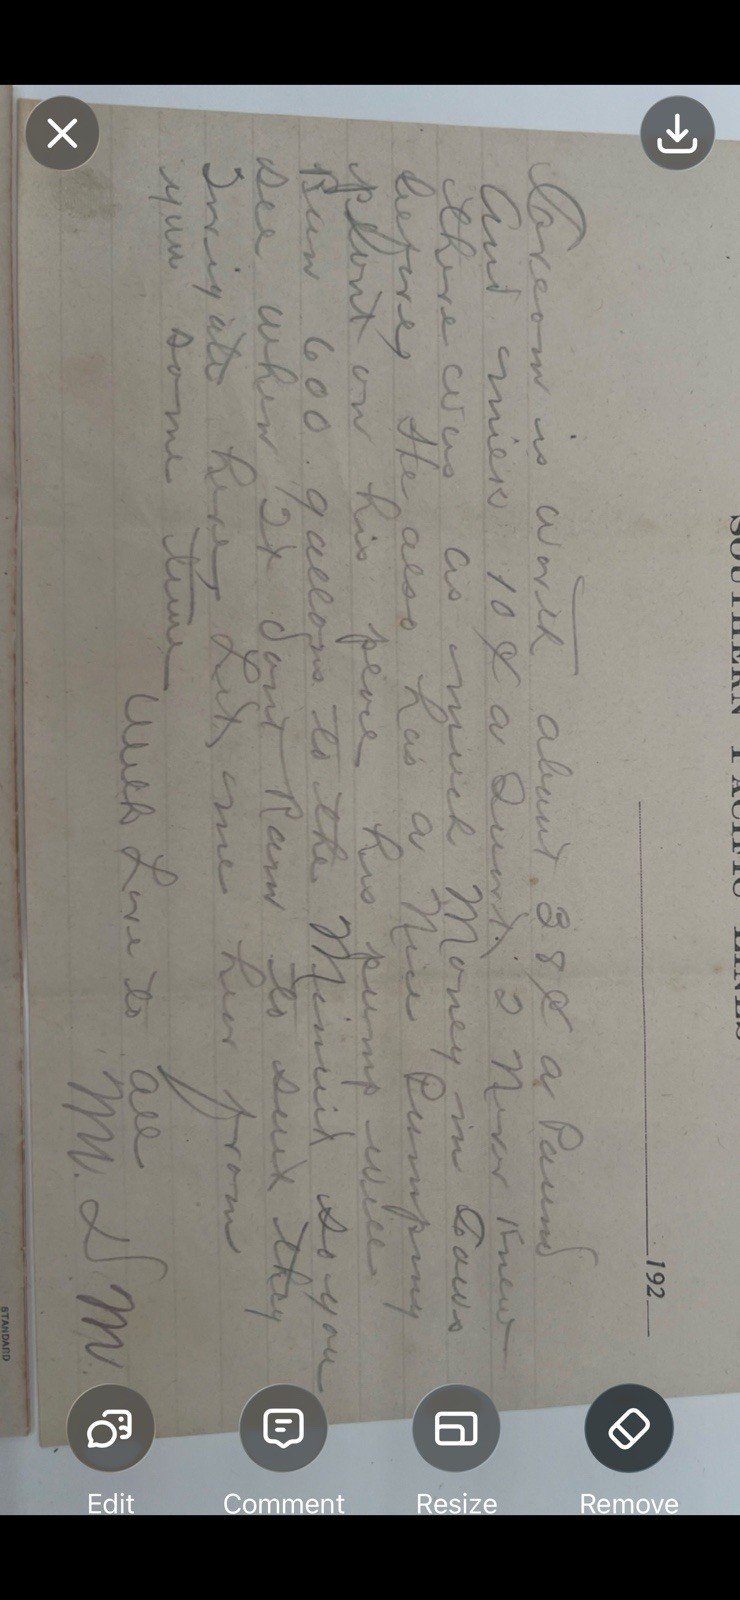 SOUTHERN PACIFIC LINES
192
Cream is worth about 38¢ a Pound
And milk 10¢ a Quart. I Never Knew
there was as much Money in Cows
before, He also has a Nice Pumping
plant on his place his pump will
Run 600 gallons to the Minuit so you
see when It dont Rain to suit they
Irrigate here, Let me hear from
you some time
With Love to all
M. L. M.
STANDARD
Edit
Comment
Resize
Remove